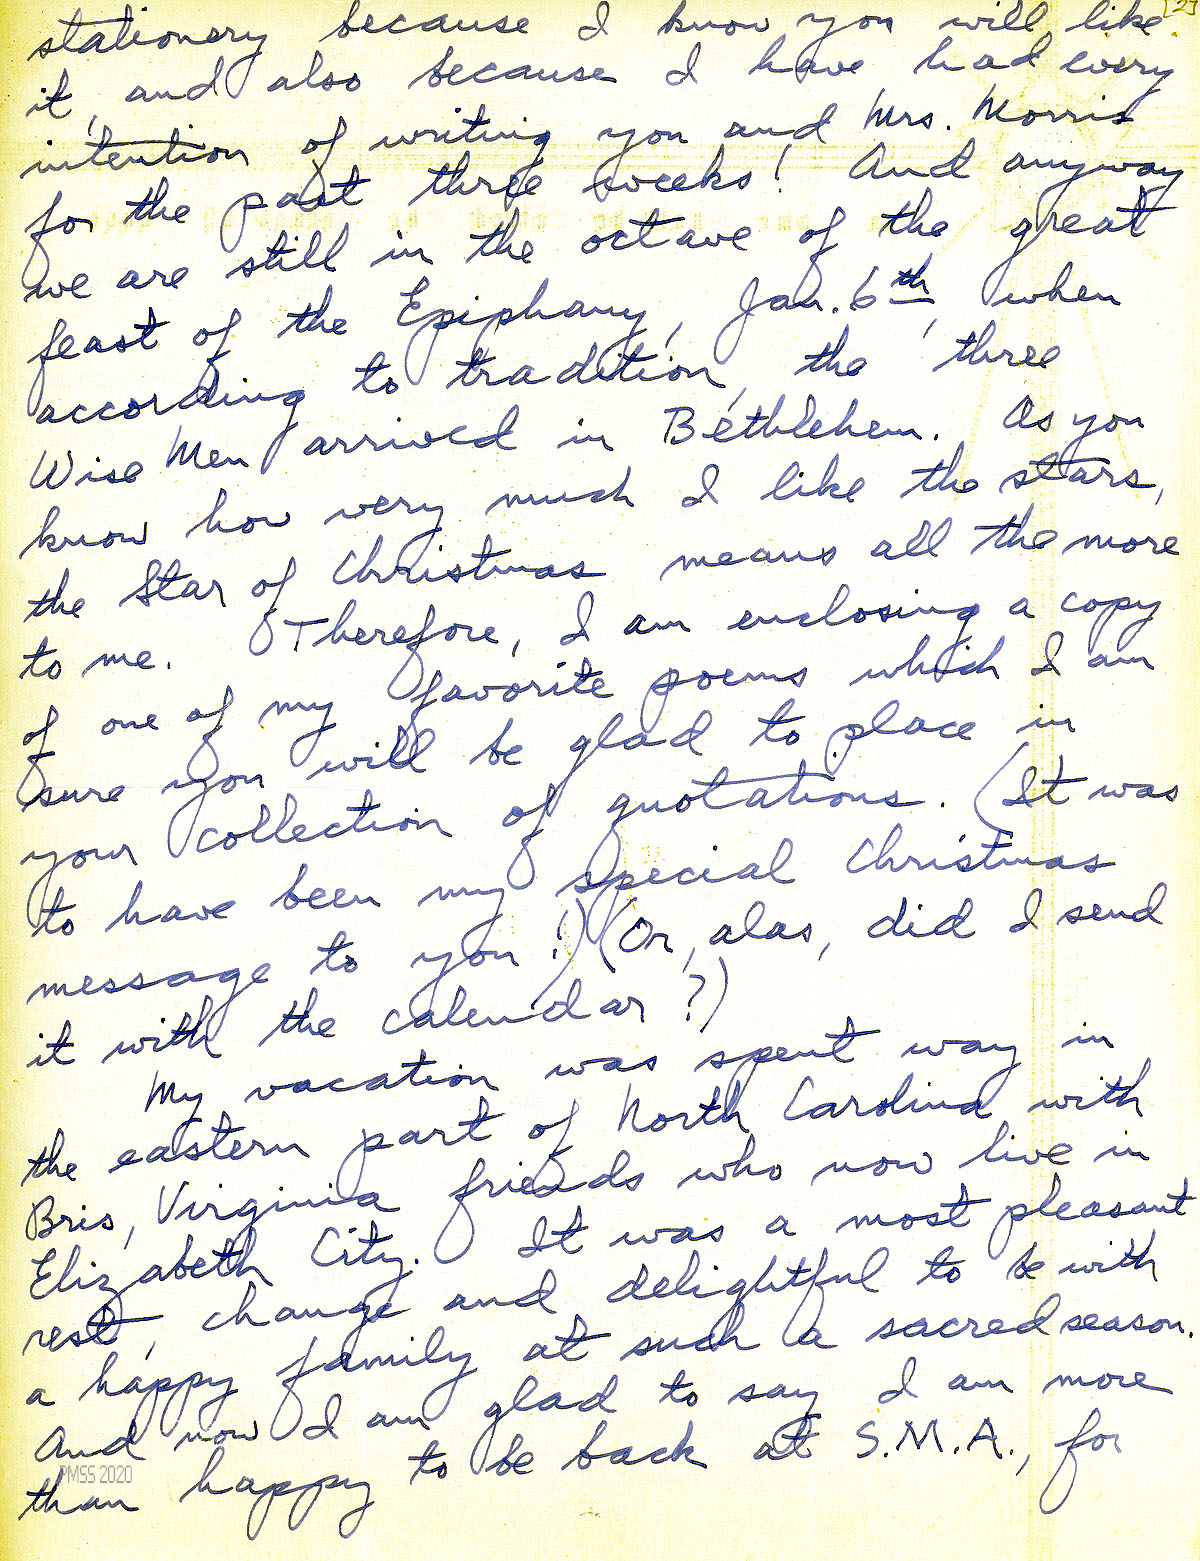 [2]
stationery because I know you will like
it, and also because I have had every
intention of writing you and Mrs. Morris
for the past three weeks! And anyway
we are still in the octave of the great
feast of the Epiphany, Jan. 6th, when
according to tradition, the three
Wise Men arrived in Bethlehem. As you
know how very much I like the stars,
the Star of Christmas means all the more
to me. Therefore, I am enclosing a copy
of one of my favorite poems which I am
sure you will be glad to place in
your collection of quotations. (It was
to have been my special Christmas
message to you!) (Or, alas, did I send
it with the calendar?)
My vacation was spent way in
the eastern part of North Carolina with
Bris, Virginia friends who now live in
Elizabeth City. It was a most pleasant
rest, change and delightful to be with
a happy family at such a sacred season.
And now I am glad to say I am more
than happy to be back at S.M.A., for
PMSS 2020